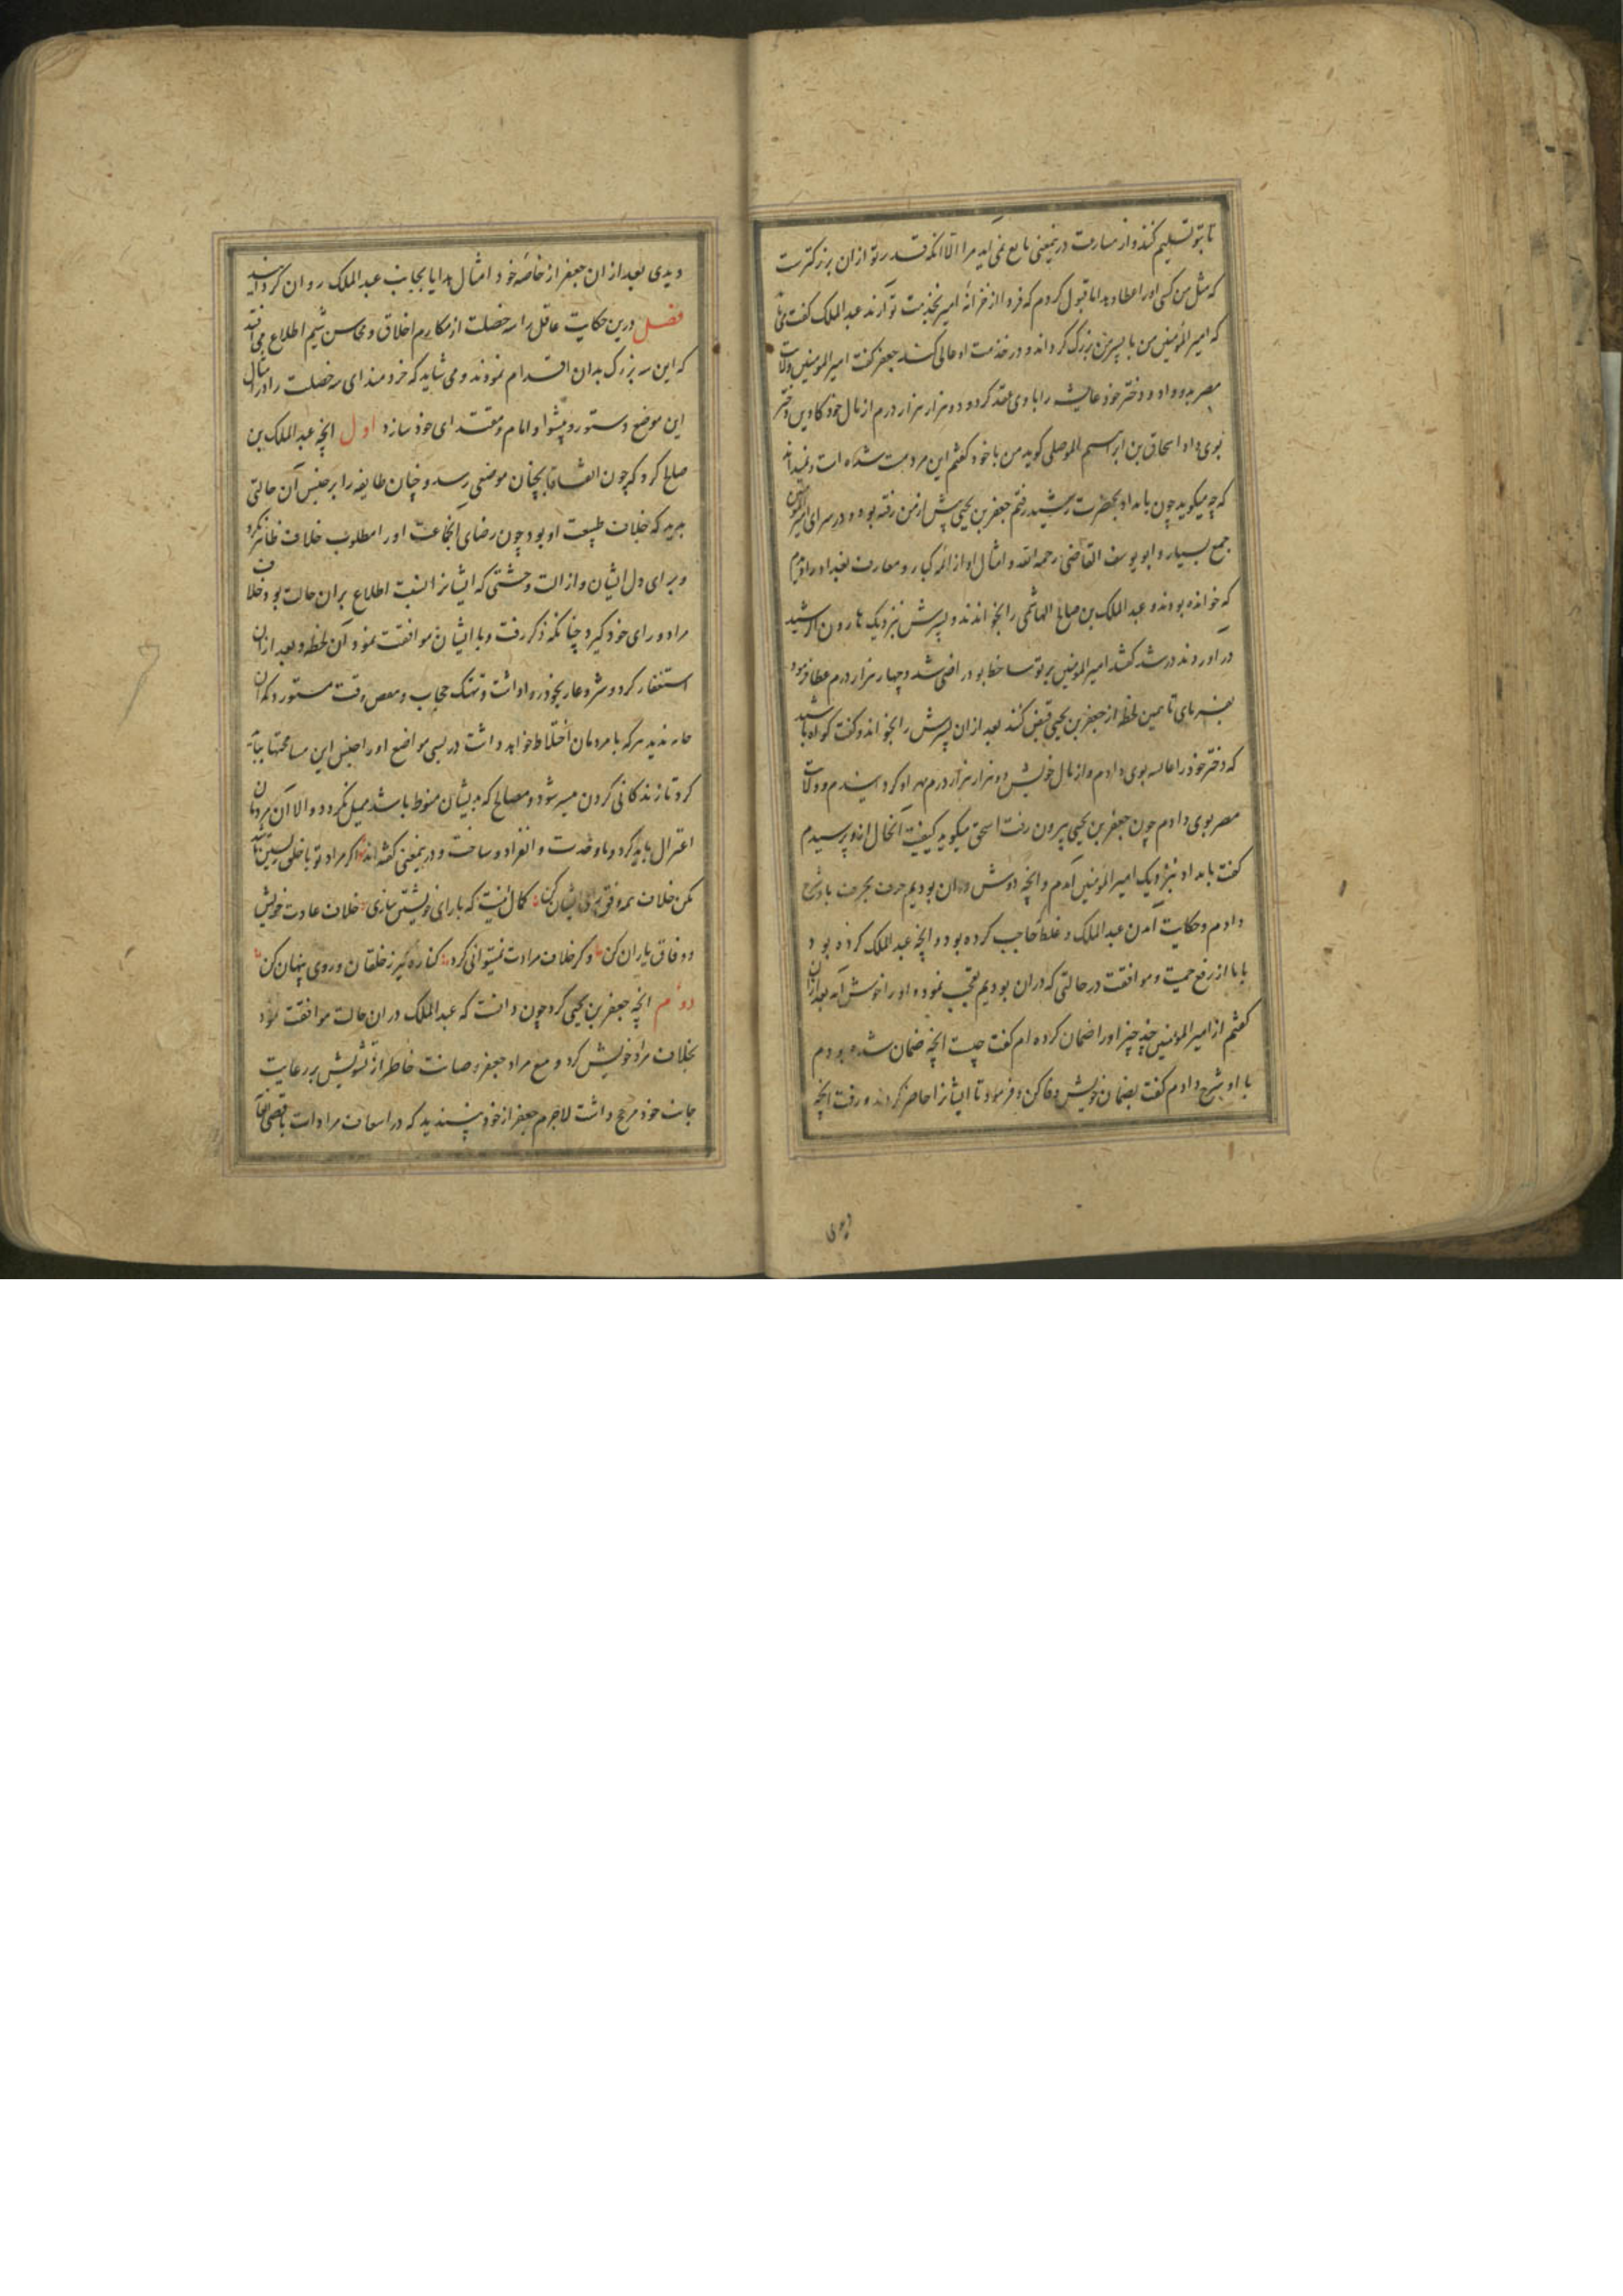 تا بتو تسلیم کنند و از مسارعت درینمعنی مانع نمی آید مرا الا آنکه قدر تو ازان بزرکترست
که مثل من کسی اورا عطا دهد اما قبول کردم که فردا از خزانه امیر بخدمت تو آرند عبد الملک کفت
که امیر المؤمنین من با پسر من بزرک کرداند و در خدمت او عالی کند جعفر کفت امیر المومنین ولایت
مصر بدو داد و دختر خود عایشه را با وی عقد کرد و دو هزار هزار درم از مال خود کاوین دختر
بوی داد اسحاق بن ابراهیم الموصلی کوید من با خود کفتم این مرد مست شده است و نمیداند
که چه میکوید چون بامداد بحضرت رشید رفتم جعفر بن یحیی پیش از من رفته بود و در سرای امیر المومنین
جمع بسیار و ابو یوسف القاضی رحمه الله و امثال او از ائمه کبار و معارف بغداد را
که خوانده بودند و عبد الملک بن صالح الهاشمی را بخواندند و پسرش نزدیک هارون الرشید
در آوردند رشید کفت امیر المومنین بر تو ساخط بود راضی شد و چهار هزار درم عطا فرمود
بفرمای تا همین لحظه از جعفر بن یحیی قبض کنند بعد ازان پسرش را بخواند و کفت کواه باشید
که دختر خود را عالیه بوی دادم و از مال خویش دو هزار هزار درم مهر او کردانیدم و ولایت
مصر بوی دادم چون جعفر بن یحیی بیرون رفت اسحق میکوید کیفیت آنحال ازو پرسیدم
کفت بامداد بنزدیک امیر المؤمنین آمدم و آنچه دوش دران بودیم حرف بحرف با او شرح
دادم و حکایت آمدن عبد الملک و غلط حاجب کرده بود و آنچه عبد الملک کرده بود
با ما از رفع حمیت و موافقت در حالتی که دران بودیم تعجب نموده اورا خوش آمد بعد ازان
کفتم از امیر المومنین چند چیز اورا ضمان کرده ام کفت چیست آنچه ضمان شده بودم
با او شرح دادم کفت بضمان خویش وفا کن و فرمود تا ایشانرا حاضر کردند و رفت آنچه
دیدی
دیدی بعد ازان جعفر از خاصه خود امثال هدایا بجانب عبد الملک روان کردانید
فصل درین حکایت عاقل را سه خصلت از مکارم اخلاق و محاسن شیم اطلاع می افتد
که این سه بزرک بدان اقدام نمودند و می شاید که خردمند ای سه خصلت را در امثال
این موضع دستور و پیشوا و امام و مقتدای خود سازد اول آنچه عبد الملک بن
صالح کرد که چون اتفاقا بچنان موضعی رسد و چنان طایفه را بر جنس آن حالتی
بدید که خلاف طبیعت او بود چون رضای آنجماعت اورا مطلوب بود خلاف ظاهر نکرد
و برای دل ایشان و ازالت وحشتی که ایشانرا بسبب اطلاع بران حالت بود خلاف
مراد و رای خود کیرد چنانکه ذکر رفت و با ایشان موافقت نمود آن لحظه و بعد ازان
استغفار کرد و شر و عار بخود ره اداشت و تهتک حجاب و معص وقت مستور دکه آن
حارندید هرکه با مردمان اختلاط خواهد داشت در بسی مواضع اورا جنس این مسامحتها بباید
کرد تا زندکانی کردن میسر شود و مصالح که بدیشان منوط باشد میل نکردد و الا آن مردمان
اعتزال باید کرد و با وحدت و انفراد و ساخت و درینمعنی کفته اند اکر مراد تو با خلق
مکن خلاف همه وفق رای ایشان کن کمال نیست که با رای خویشتن سازی خلاف عادت خویش
و وفاق یاران کن و کر خلاف مرادت نمیتوانی کرد کناره کیر ز خلقان و روی پنهان کن
دوم آنچه جعفر بن یحیی کرد چون دانست که عبد الملک دران حالت موافقت نمود
بخلاف مراد خویش کرد و مع مراد جعفر و صیانت خاطر از تشویش بر رعایت
جانب خود مرجح داشت لاجرم جعفر از خود پسندید که در اسعاف مرادات